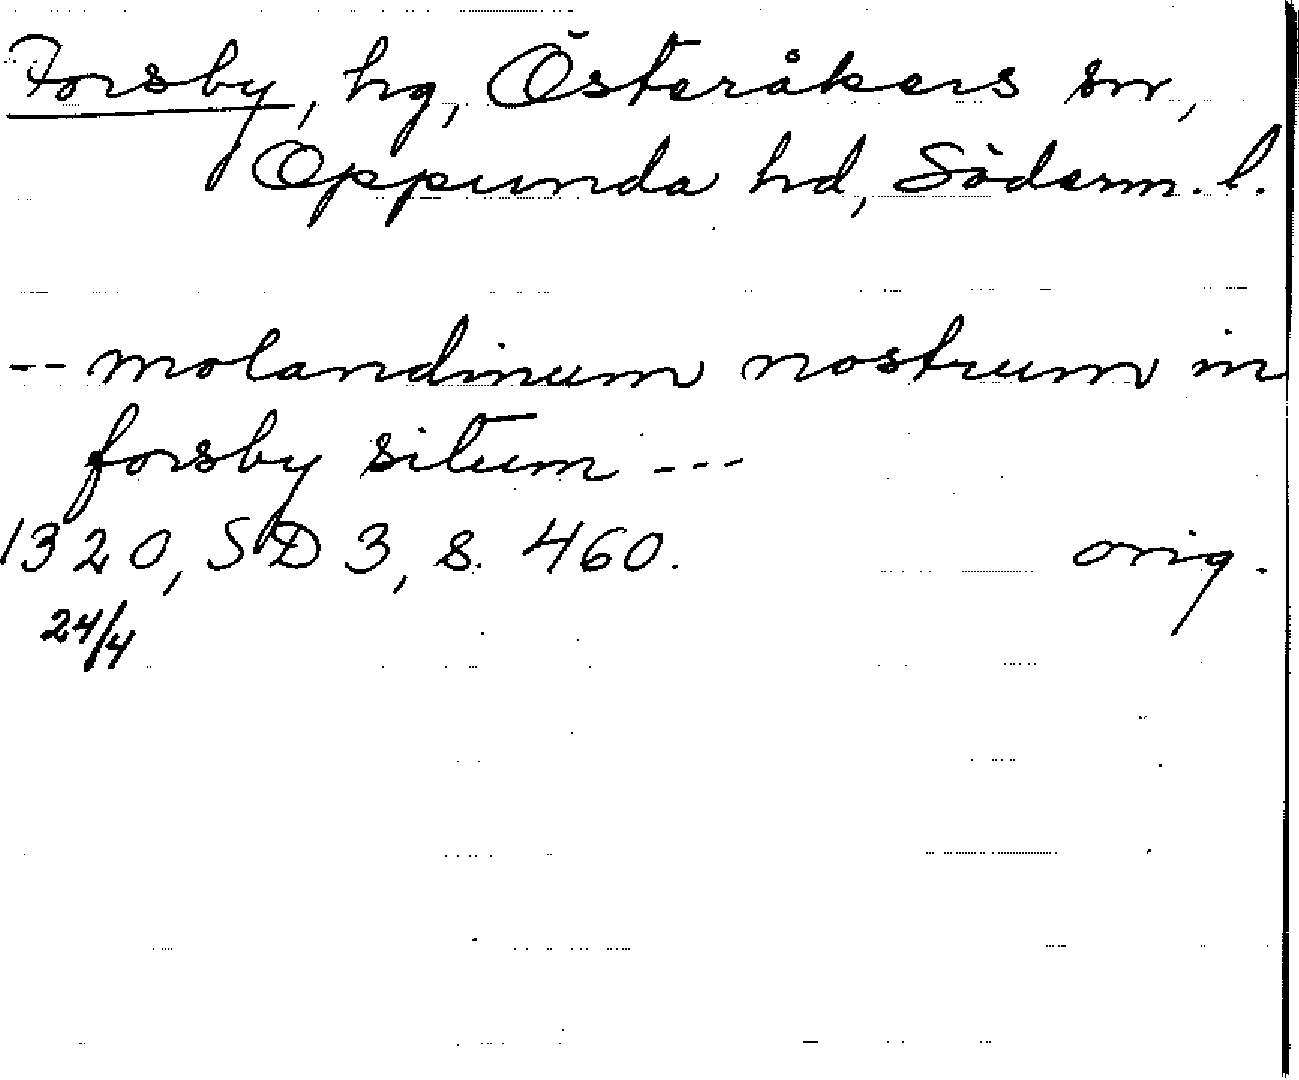 Forsby, hg, Österåkers sn,
Oppunda hd, Söderm. l.
-- molandinum nostrum in
forsby situm ---
1320, SD 3, s. 460. orig.
24/4